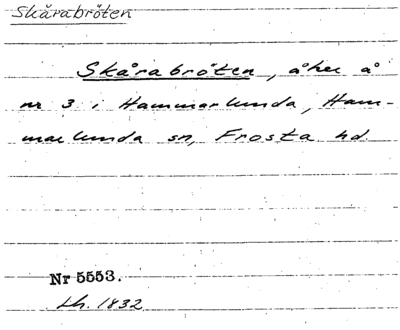 Skårabröten
Skårabröten, åker å
nr 3 i Hammarlunda, Ham-
marlunda sn, Frosta hd.
Nr 5553.
Lh. 1832